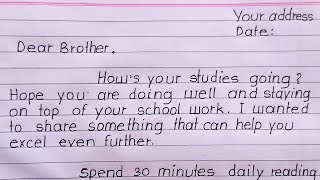 Your address
Date:
Dear Brother.
How's your studies going?
Hope you are doing well and staying
on top of your school work. I wanted
to share something that can help you
excel even further.
Spend 30 minutes daily reading